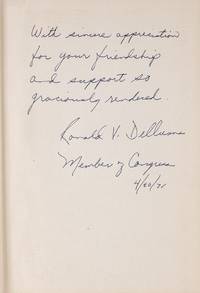 With sincere appreciation
for your friendship
and support so
graciously rendered.
Ronald V. Dellums
Member of Congress
4/20/71